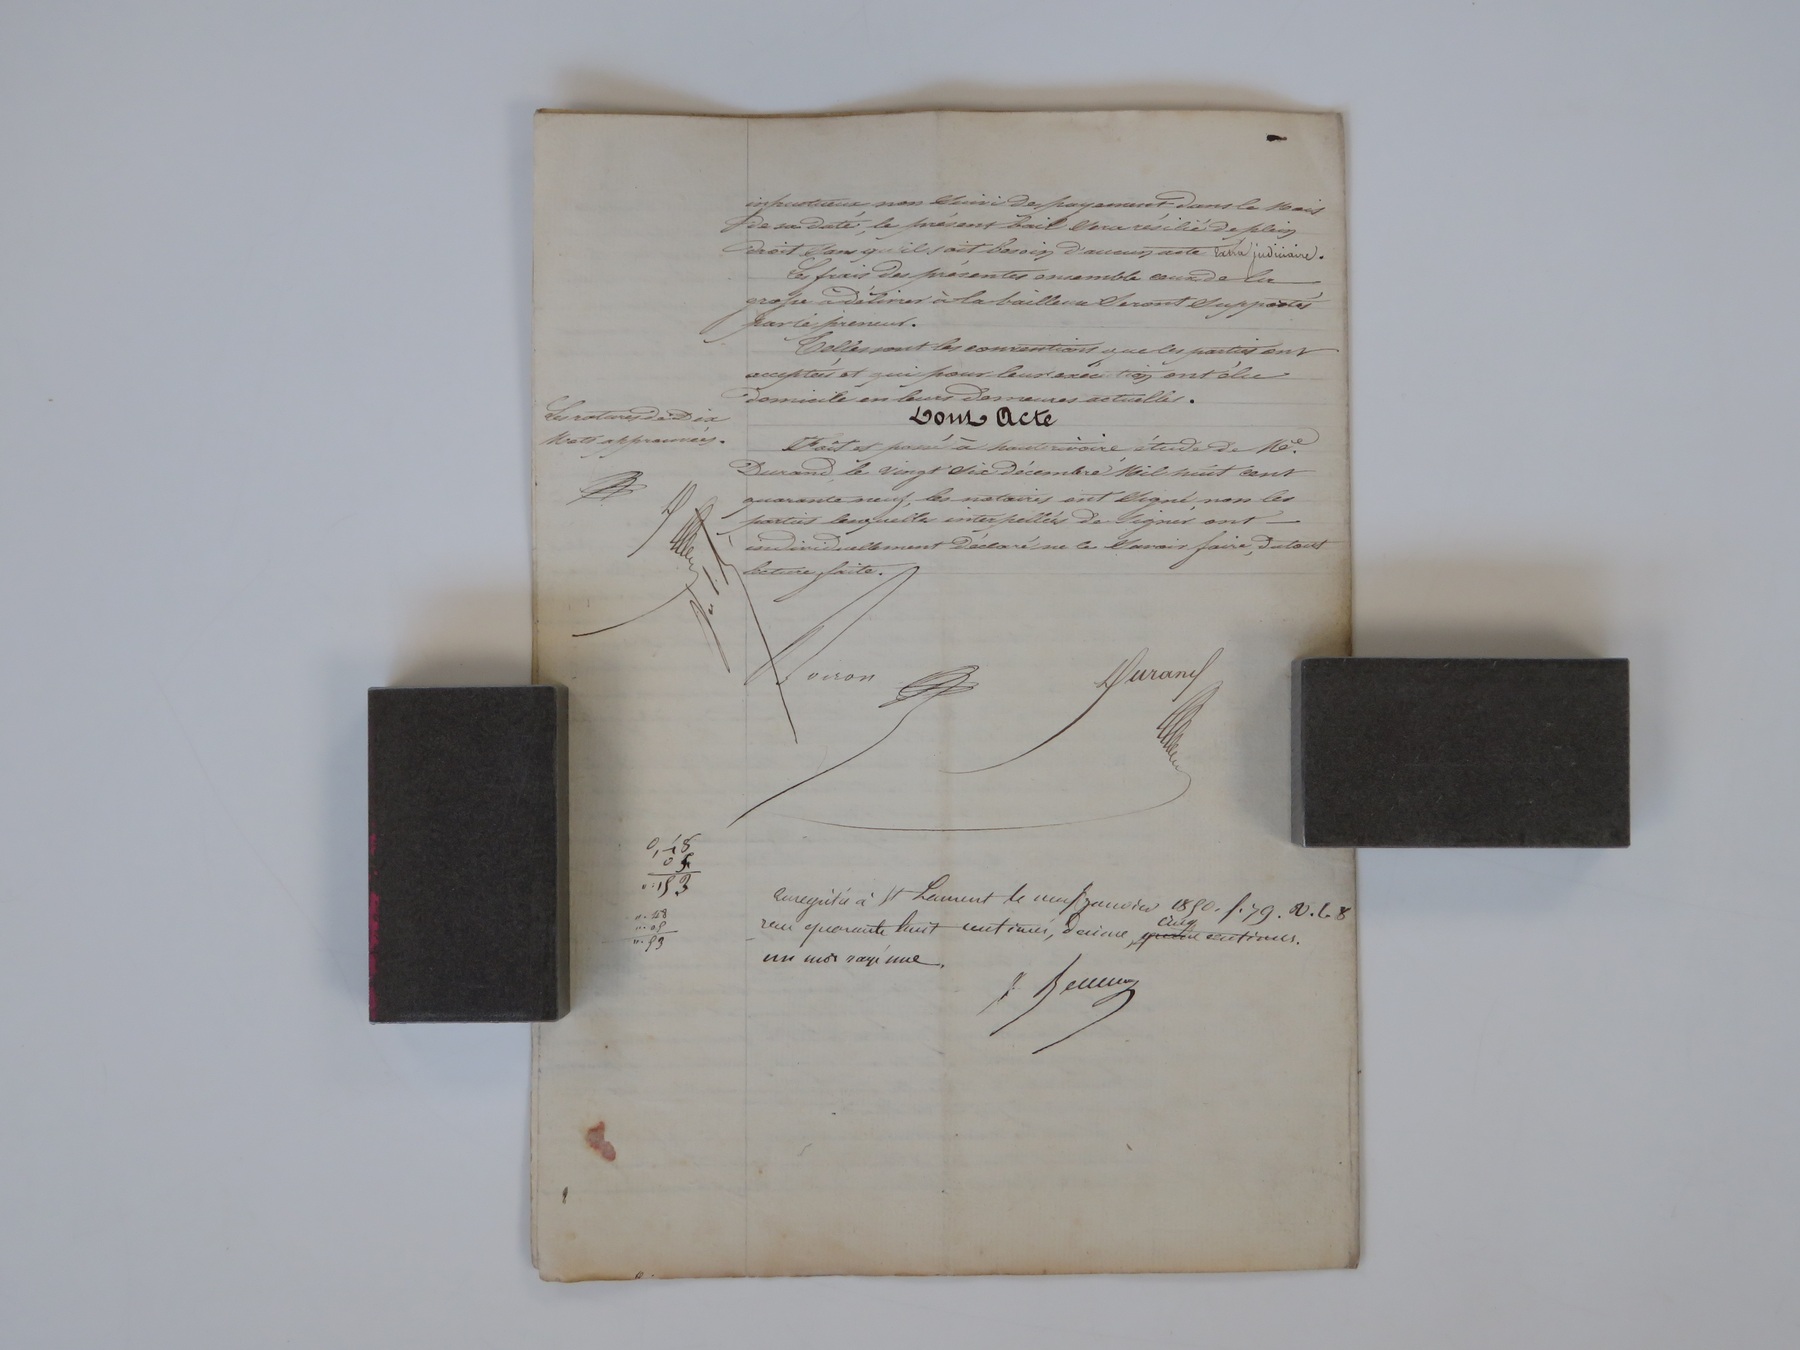 infructueux non suivi de payement dans le mois
de sa date, le présent bail sera résilié de plein
droit sans qu'il soit besoin d'aucun acte extra judiciaire.
Les frais des présentes ensemble ceux de la
grosse à délivrer à la bailleuse seront supportés
par le preneur.
Telles sont les conventions que les parties ont
acceptées et qui pour leur exécution ont élu
domicile en leurs demeures actuelles.
Dont Acte
Les ratures de dix
mots approuvées.
Fait et passé à hauterivoire étude de Me.
Durand, le vingt six décembre mil huit cent
quarante neuf, les notaires ont signé non les
parties lesquelles interpellées de signer ont
individuellement déclaré ne le savoir faire, du tout
lecture faite.
Voiron
Durand
0,48
05
53
48
05
53
Enregistré à St Laurent le neuf janvier 1850. f. 79. V. C. 8
reçu quarante huit centimes, décime cinq centimes.
un mot rayé nul.